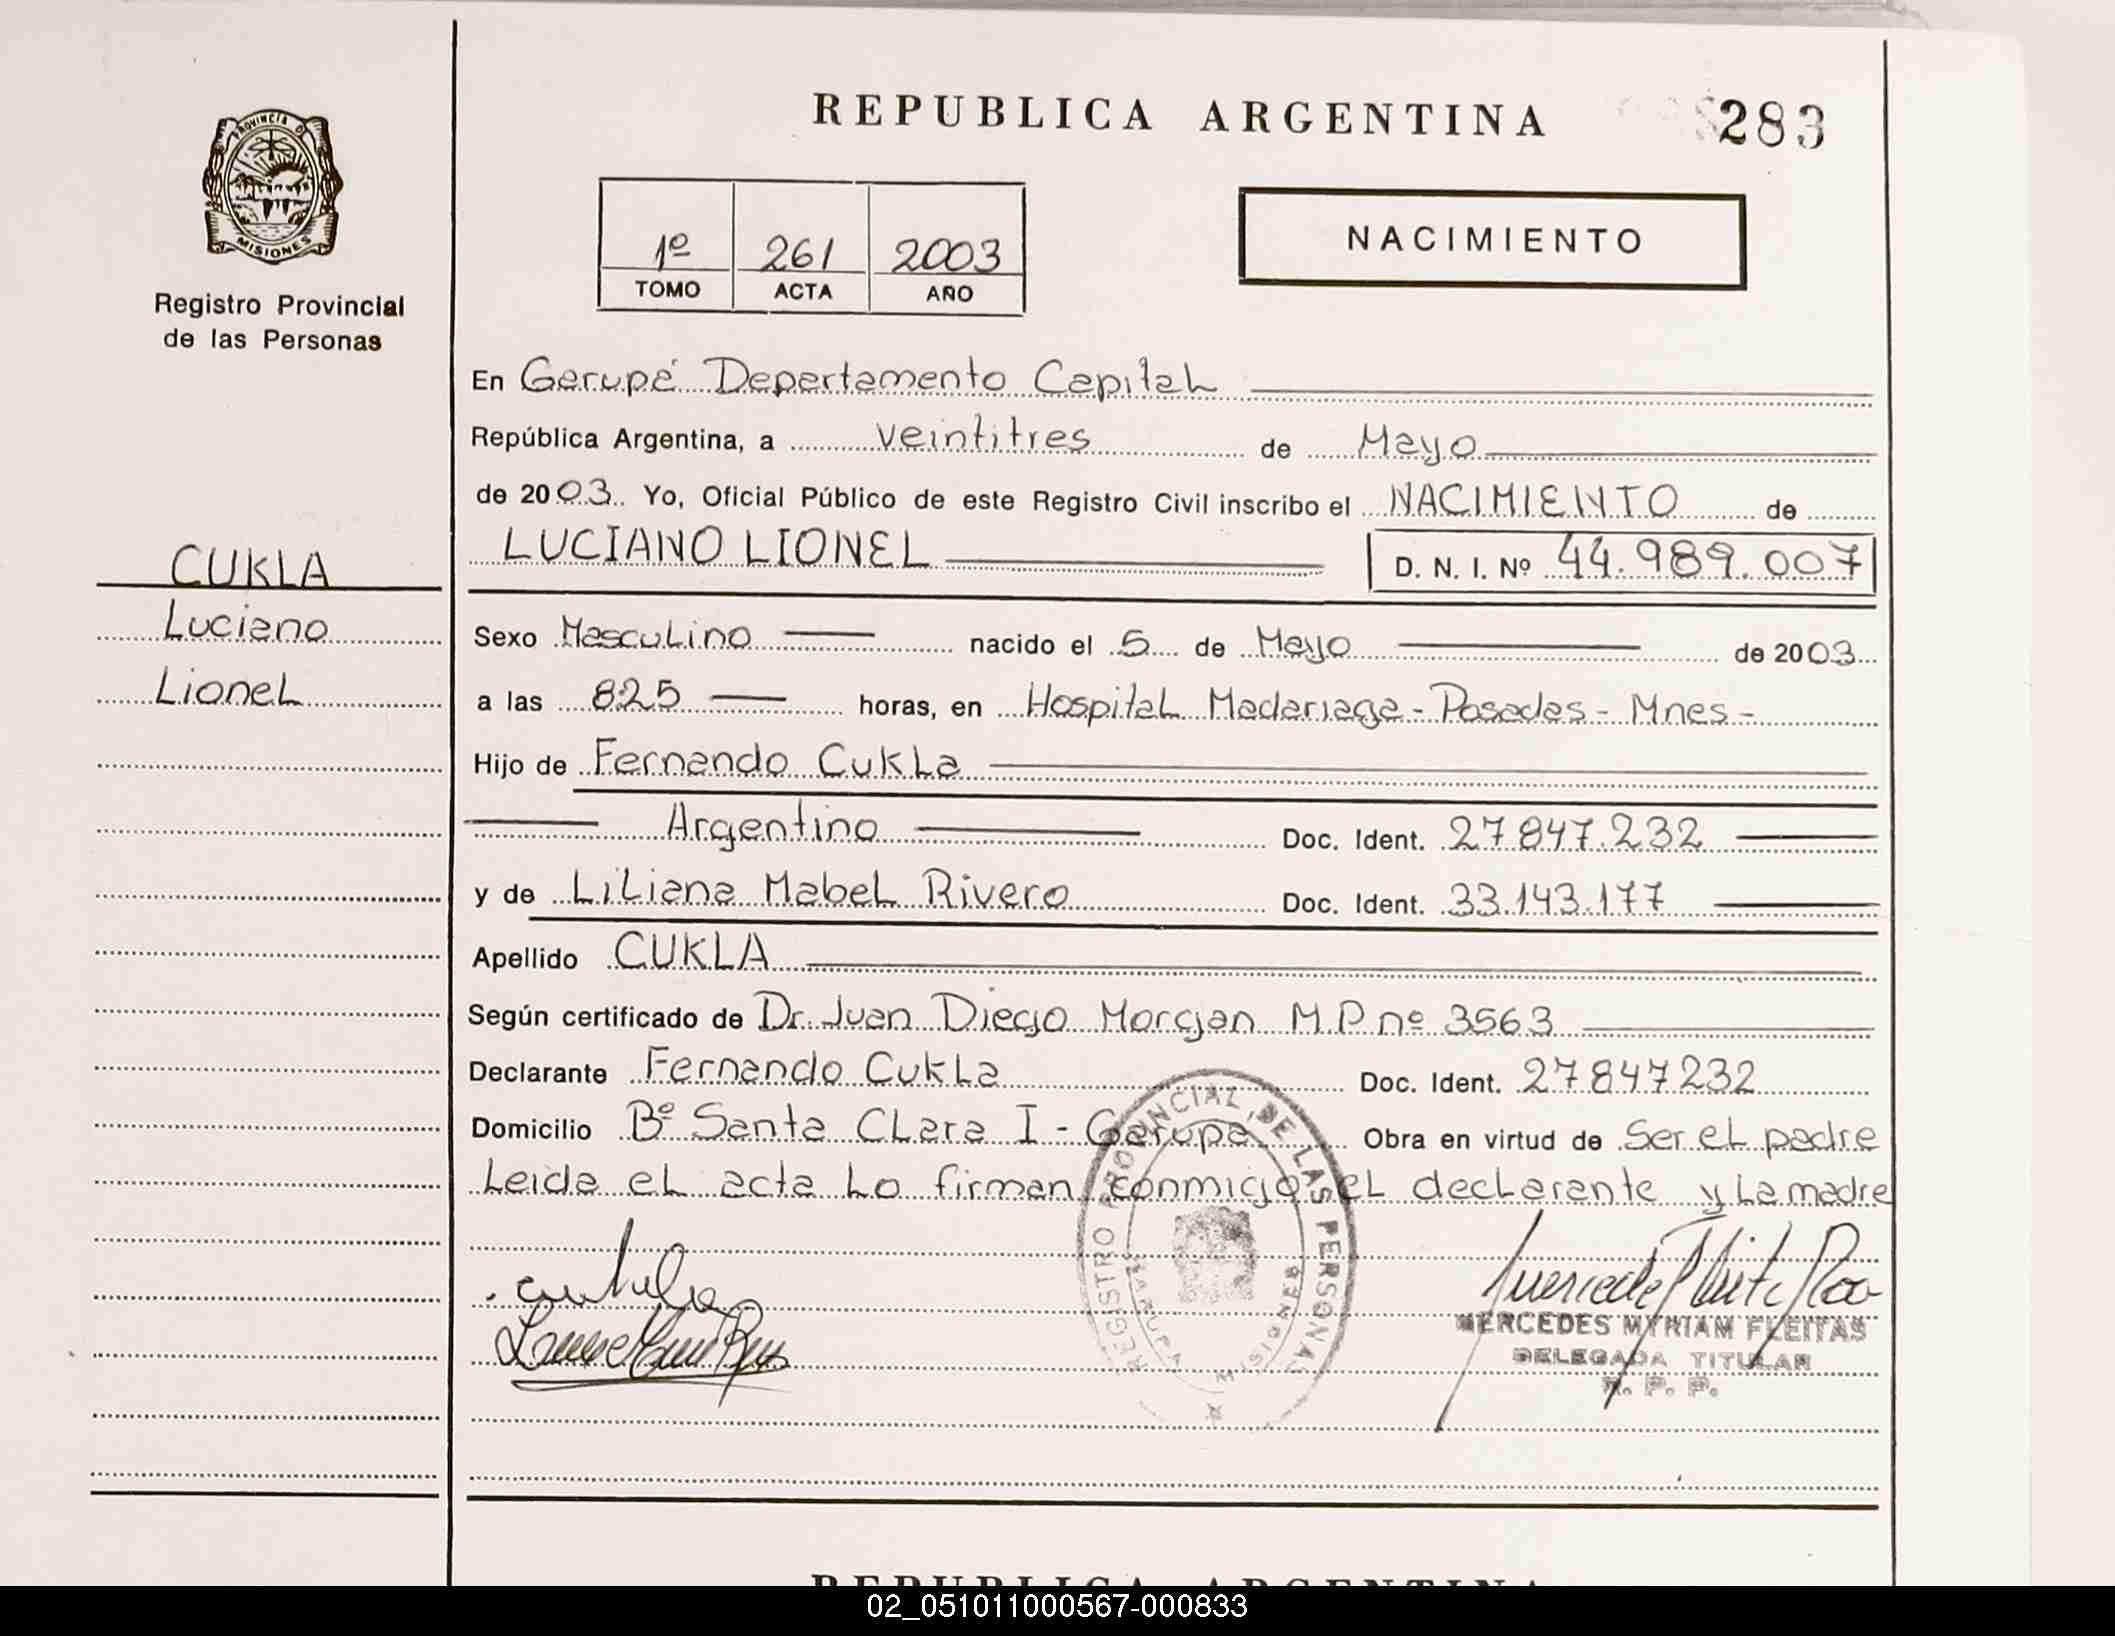 REPUBLICA ARGENTINA
283
PROVINCIA DE
MISIONES
Registro Provincial
de las Personas
1º 261 2003
TOMO ACTA AÑO
NACIMIENTO
En Garupá Departamento Capital
República Argentina, a veintitres de Mayo
de 2003. Yo, Oficial Público de este Registro Civil inscribo el NACIMIENTO de
LUCIANO LIONEL D. N. I. Nº 44.989.007
CUKLA
Luciano
Lionel
Sexo Masculino nacido el 5 de Mayo de 2003
a las 825 horas, en Hospital Madariaga - Posadas - Mnes -
Hijo de Fernando Cukla
Argentino Doc. Ident. 27847.232
y de Liliana Mabel Rivero Doc. Ident. 33.143.177
Apellido CUKLA
Según certificado de Dr. Juan Diego Morgan M.P nº 3563
Declarante Fernando Cukla Doc. Ident. 27847232
Domicilio Bº Santa Clara I - Garupa Obra en virtud de Ser el padre
Leida el acta lo firman conmigo el declarante y la madre
REGISTRO PROVINCIAL DE LAS PERSONAS
GARUPA MISIONES
MERCEDES MYRIAM FLEITAS
DELEGADA TITULAR
R. P. P.
REPUBLICA ARGENTINA
02_051011000567-000833